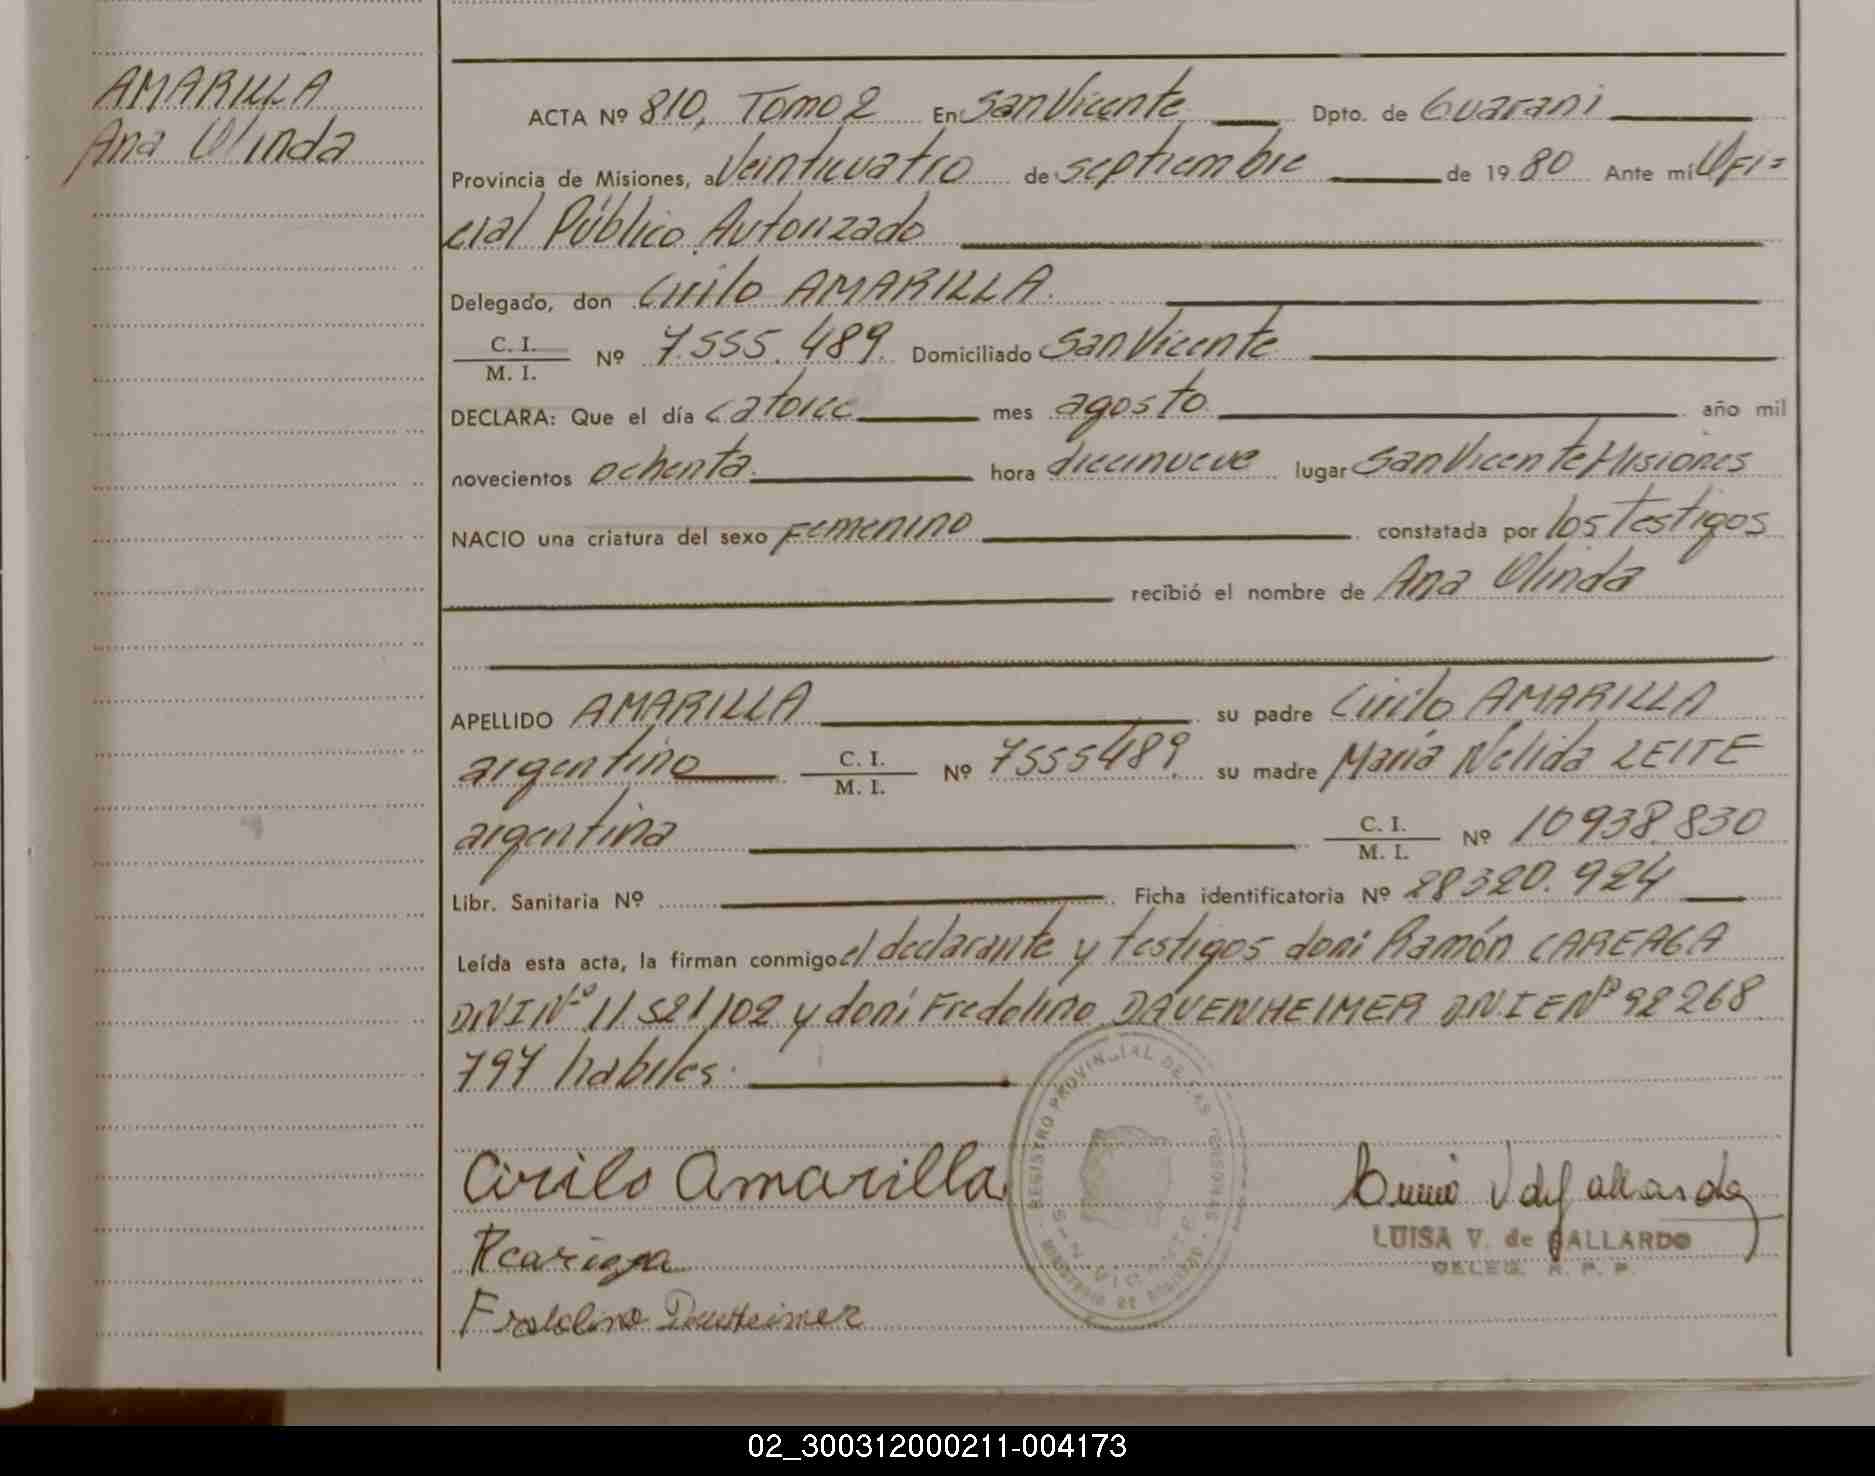 AMARILLA
Ana Olinda
ACTA Nº 810, Tomo 2 En San Vicente Dpto. de Guarani
Provincia de Misiones, a Veinticuatro de septiembre de 1980 Ante mí Ofi=
cial Público Autorizado
Delegado, don Cirilo AMARILLA.
C. I.
M. I. Nº 7.555.489. Domiciliado San Vicente
DECLARA: Que el día catorce mes agosto año mil
novecientos ochenta hora diecinueve lugar San Vicente Misiones
NACIO una criatura del sexo Femenino constatada por los Testigos
recibió el nombre de Ana Olinda
APELLIDO AMARILLA su padre Cirilo AMARILLA
argentino C. I. M. I. Nº 7555489. su madre María Nélida LEITE
argentina C. I. M. I. Nº 10938.830
Libr. Sanitaria Nº Ficha identificatoria Nº 28320.924
Leída esta acta, la firman conmigo el declarante y testigos don: Ramón CAREAGA
DNI Nº 11521102 y don: Fredolino DAVENHEIMER DNIE Nº 92268
797 habiles.
Cirilo Amarilla
REGISTRO PROVINCIAL DE LAS PERSONAS
SAN VICENTE
MINISTERIO DE GOBIERNO
LUISA V. de GALLARDO
DELEG. R. P. P.
02_300312000211-004173